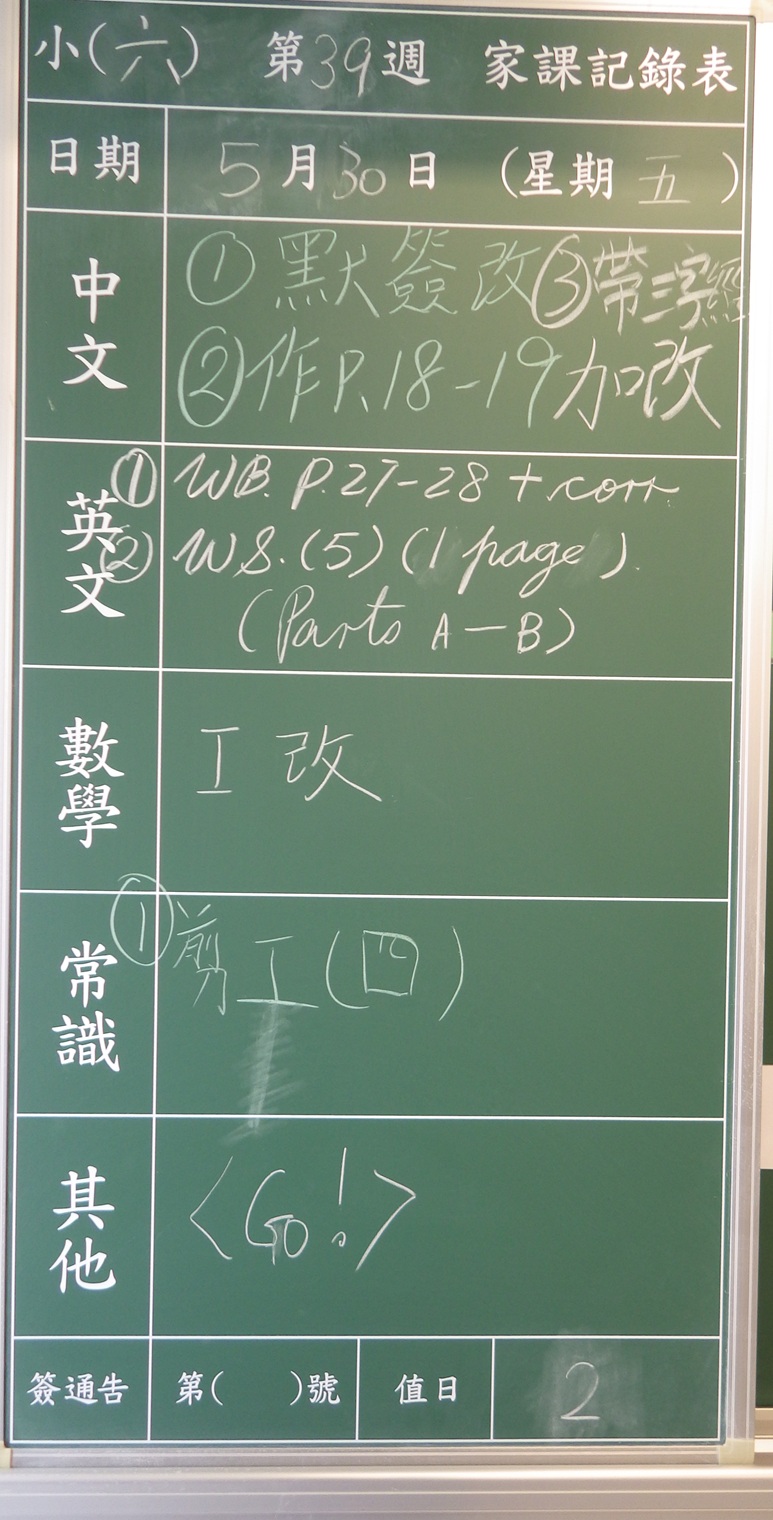 小(六) 第39週 家課記錄表
日期 5月30日 (星期五)
中文
①默簽改③帶三字經
②作P.18-19加改
英文
① WB. P.27-28 + corr.
② WS.(5) (1 page).
(Parts A-B)
數學
工改
常識
①剪工(四)
其他
<Go!>
簽通告 第( )號 值日 2